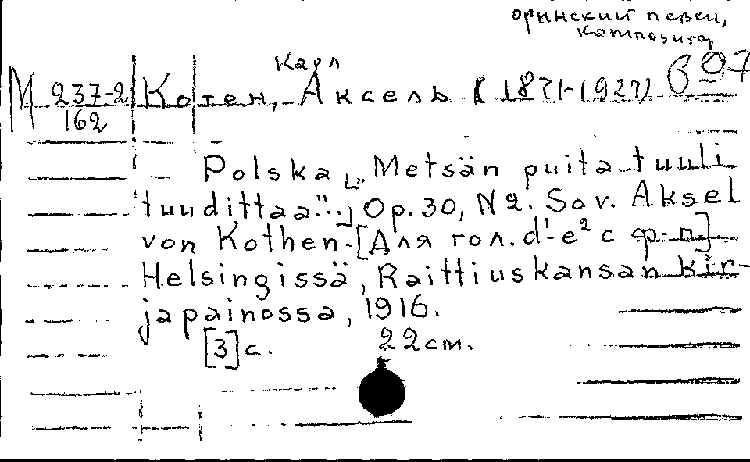 оринский певец,
композитор
Карл
М 237-2 Котен, Аксель (1871-1927) В 97
162
Polska „Metsän puita tuuli
tuudittaa"..., Op. 30, N 2. Sov. Aksel
von Kothen. [Для гол. d¹-e² с ф-п]
Helsingissä, Raittiuskansan kir-
japainossa, 1916.
[3] с. 22 см.